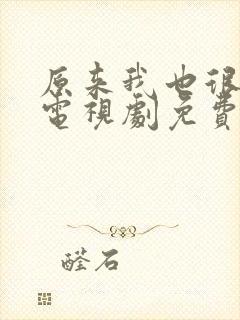 原来我也很
電視劇免費
醛石